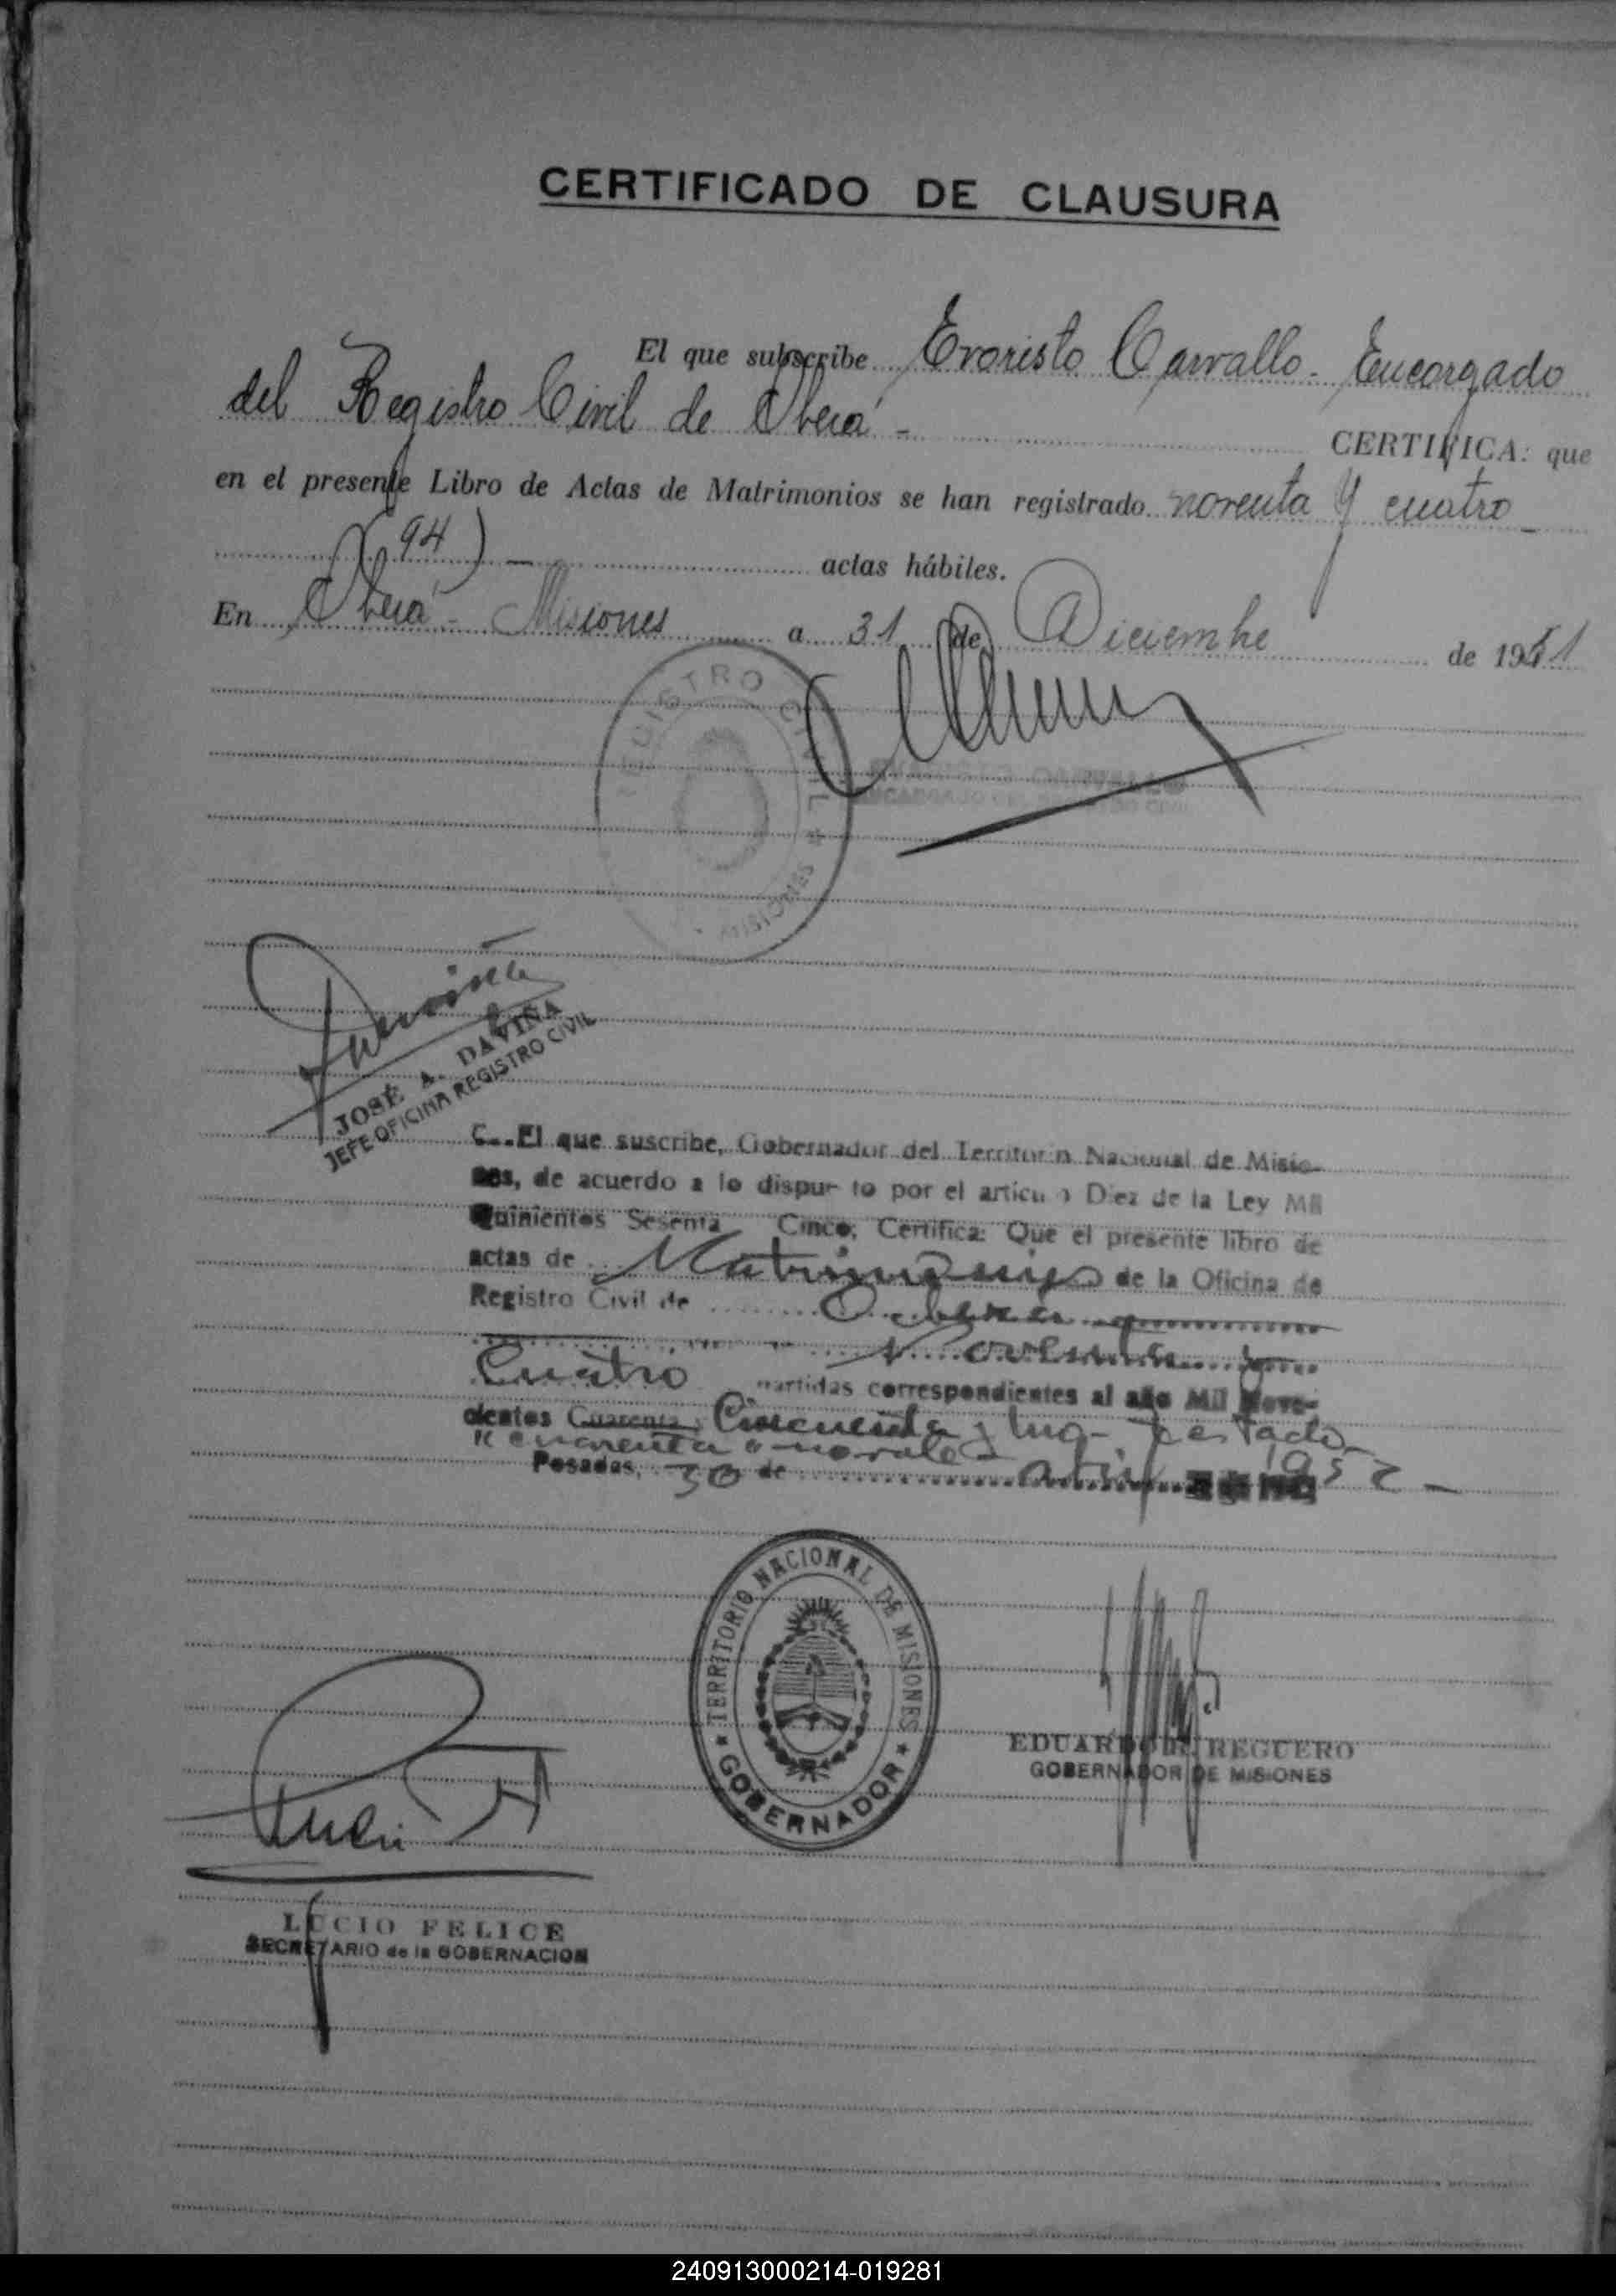 CERTIFICADO DE CLAUSURA
El que subscribe Evaristo Carvallo - Encargado
del Registro Civil de Oberá - CERTIFICA: que
en el presente Libro de Actas de Matrimonios se han registrado noventa y cuatro
(94) - actas hábiles.
En Oberá - Misiones a 31 de Diciembre de 1951
REGISTRO CIVIL
MISIONES
EVARISTO CARVALLO
ENCARGADO DEL REGISTRO CIVIL
Daviña
JOSÉ A. DAVIÑA
JEFE OFICINA REGISTRO CIVIL
El que suscribe, Gobernador del Territorio Nacional de Misio-
nes, de acuerdo a lo dispuesto por el articulo Diez de la Ley Mil
Quinientos Sesenta Cinco; Certifica: Que el presente libro de
actas de Matrimonios de la Oficina de
Registro Civil de Oberá
Noventa y
Cuatro partidas correspondientes al año Mil Nove-
cientos Cuarenta y Cincuenta y Uno - Testado
"cuarenta" no vale
Posadas, 30 de abril 1952 -
TERRITORIO NACIONAL DE MISIONES
GOBERNADOR
EDUARDO REGUERO
GOBERNADOR DE MISIONES
LUCIO FELICE
SECRETARIO de la GOBERNACION
240913000214-019281